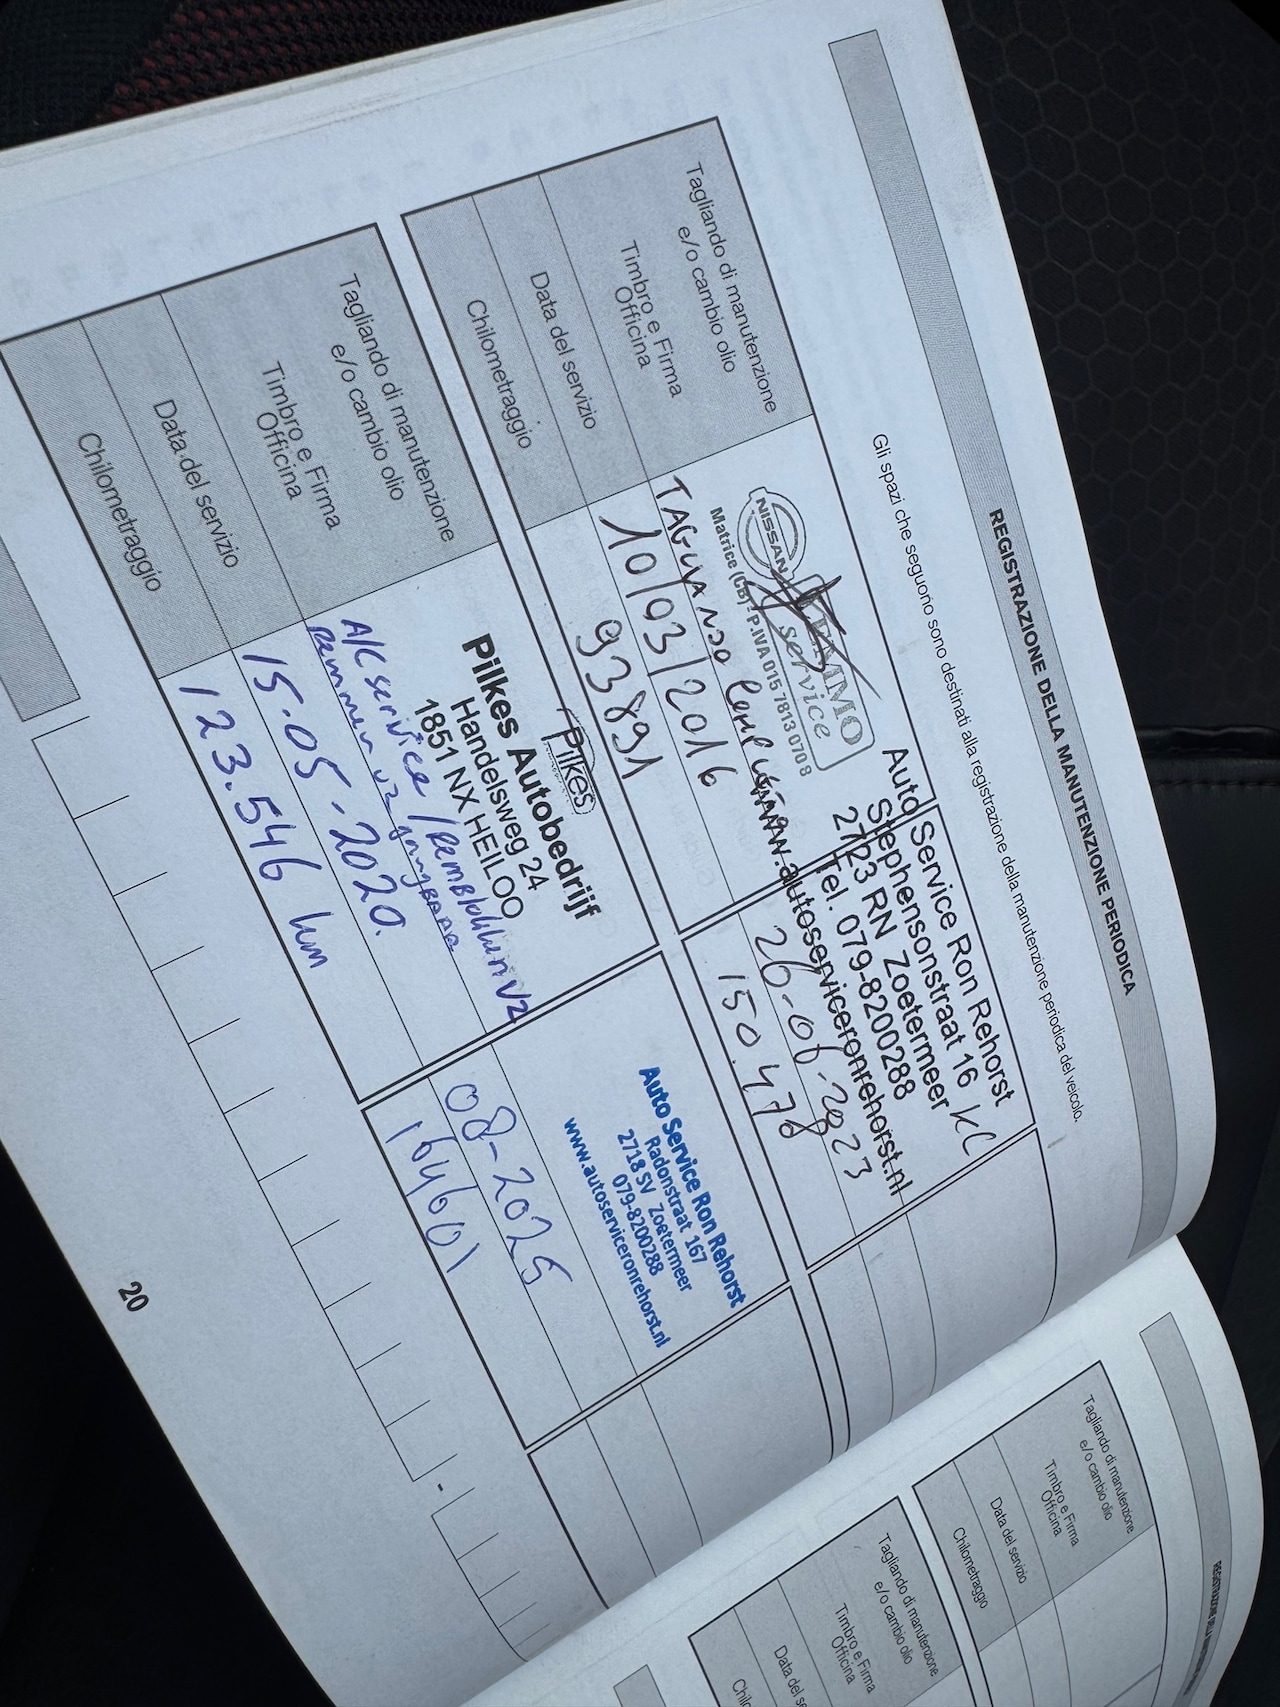 REGISTRAZIONE DELLA MANUTENZIONE PERIODICA
Gli spazi che seguono sono destinati alla registrazione della manutenzione periodica del veicolo.
Tagliando di manutenzione
e/o cambio olio
Timbro e Firma
Officina
Data del servizio
Chilometraggio
NISSAN
service
Matrice (CB) - P.IVA 015 7813 070 8
10/03/2016
93891
Auto Service Ron Rehorst
Stephensonstraat 16 KC
2723 RN Zoetermeer
Tel. 079-8200288
www.autoserviceronrehorst.nl
26-06-2023
150.478
Tagliando di manutenzione
e/o cambio olio
Timbro e Firma
Officina
Data del servizio
Chilometraggio
Pilkes
Pilkes Autobedrijf
Handelsweg 24
1851 NX HEILOO
A/C service / Remblokken VZ
Remmen vz gangbaar
15-05-2020.
123.546 km
Auto Service Ron Rehorst
Radonstraat 167
2718 SV Zoetermeer
079-8200288
www.autoserviceronrehorst.nl
08-2025
164601
20
Tagliando di manutenzione
e/o cambio olio
Timbro e Firma
Officina
Data del servizio
Chilometraggio
Tagliando di manutenzione
e/o cambio olio
Timbro e Firma
Officina
Data del se
Chil